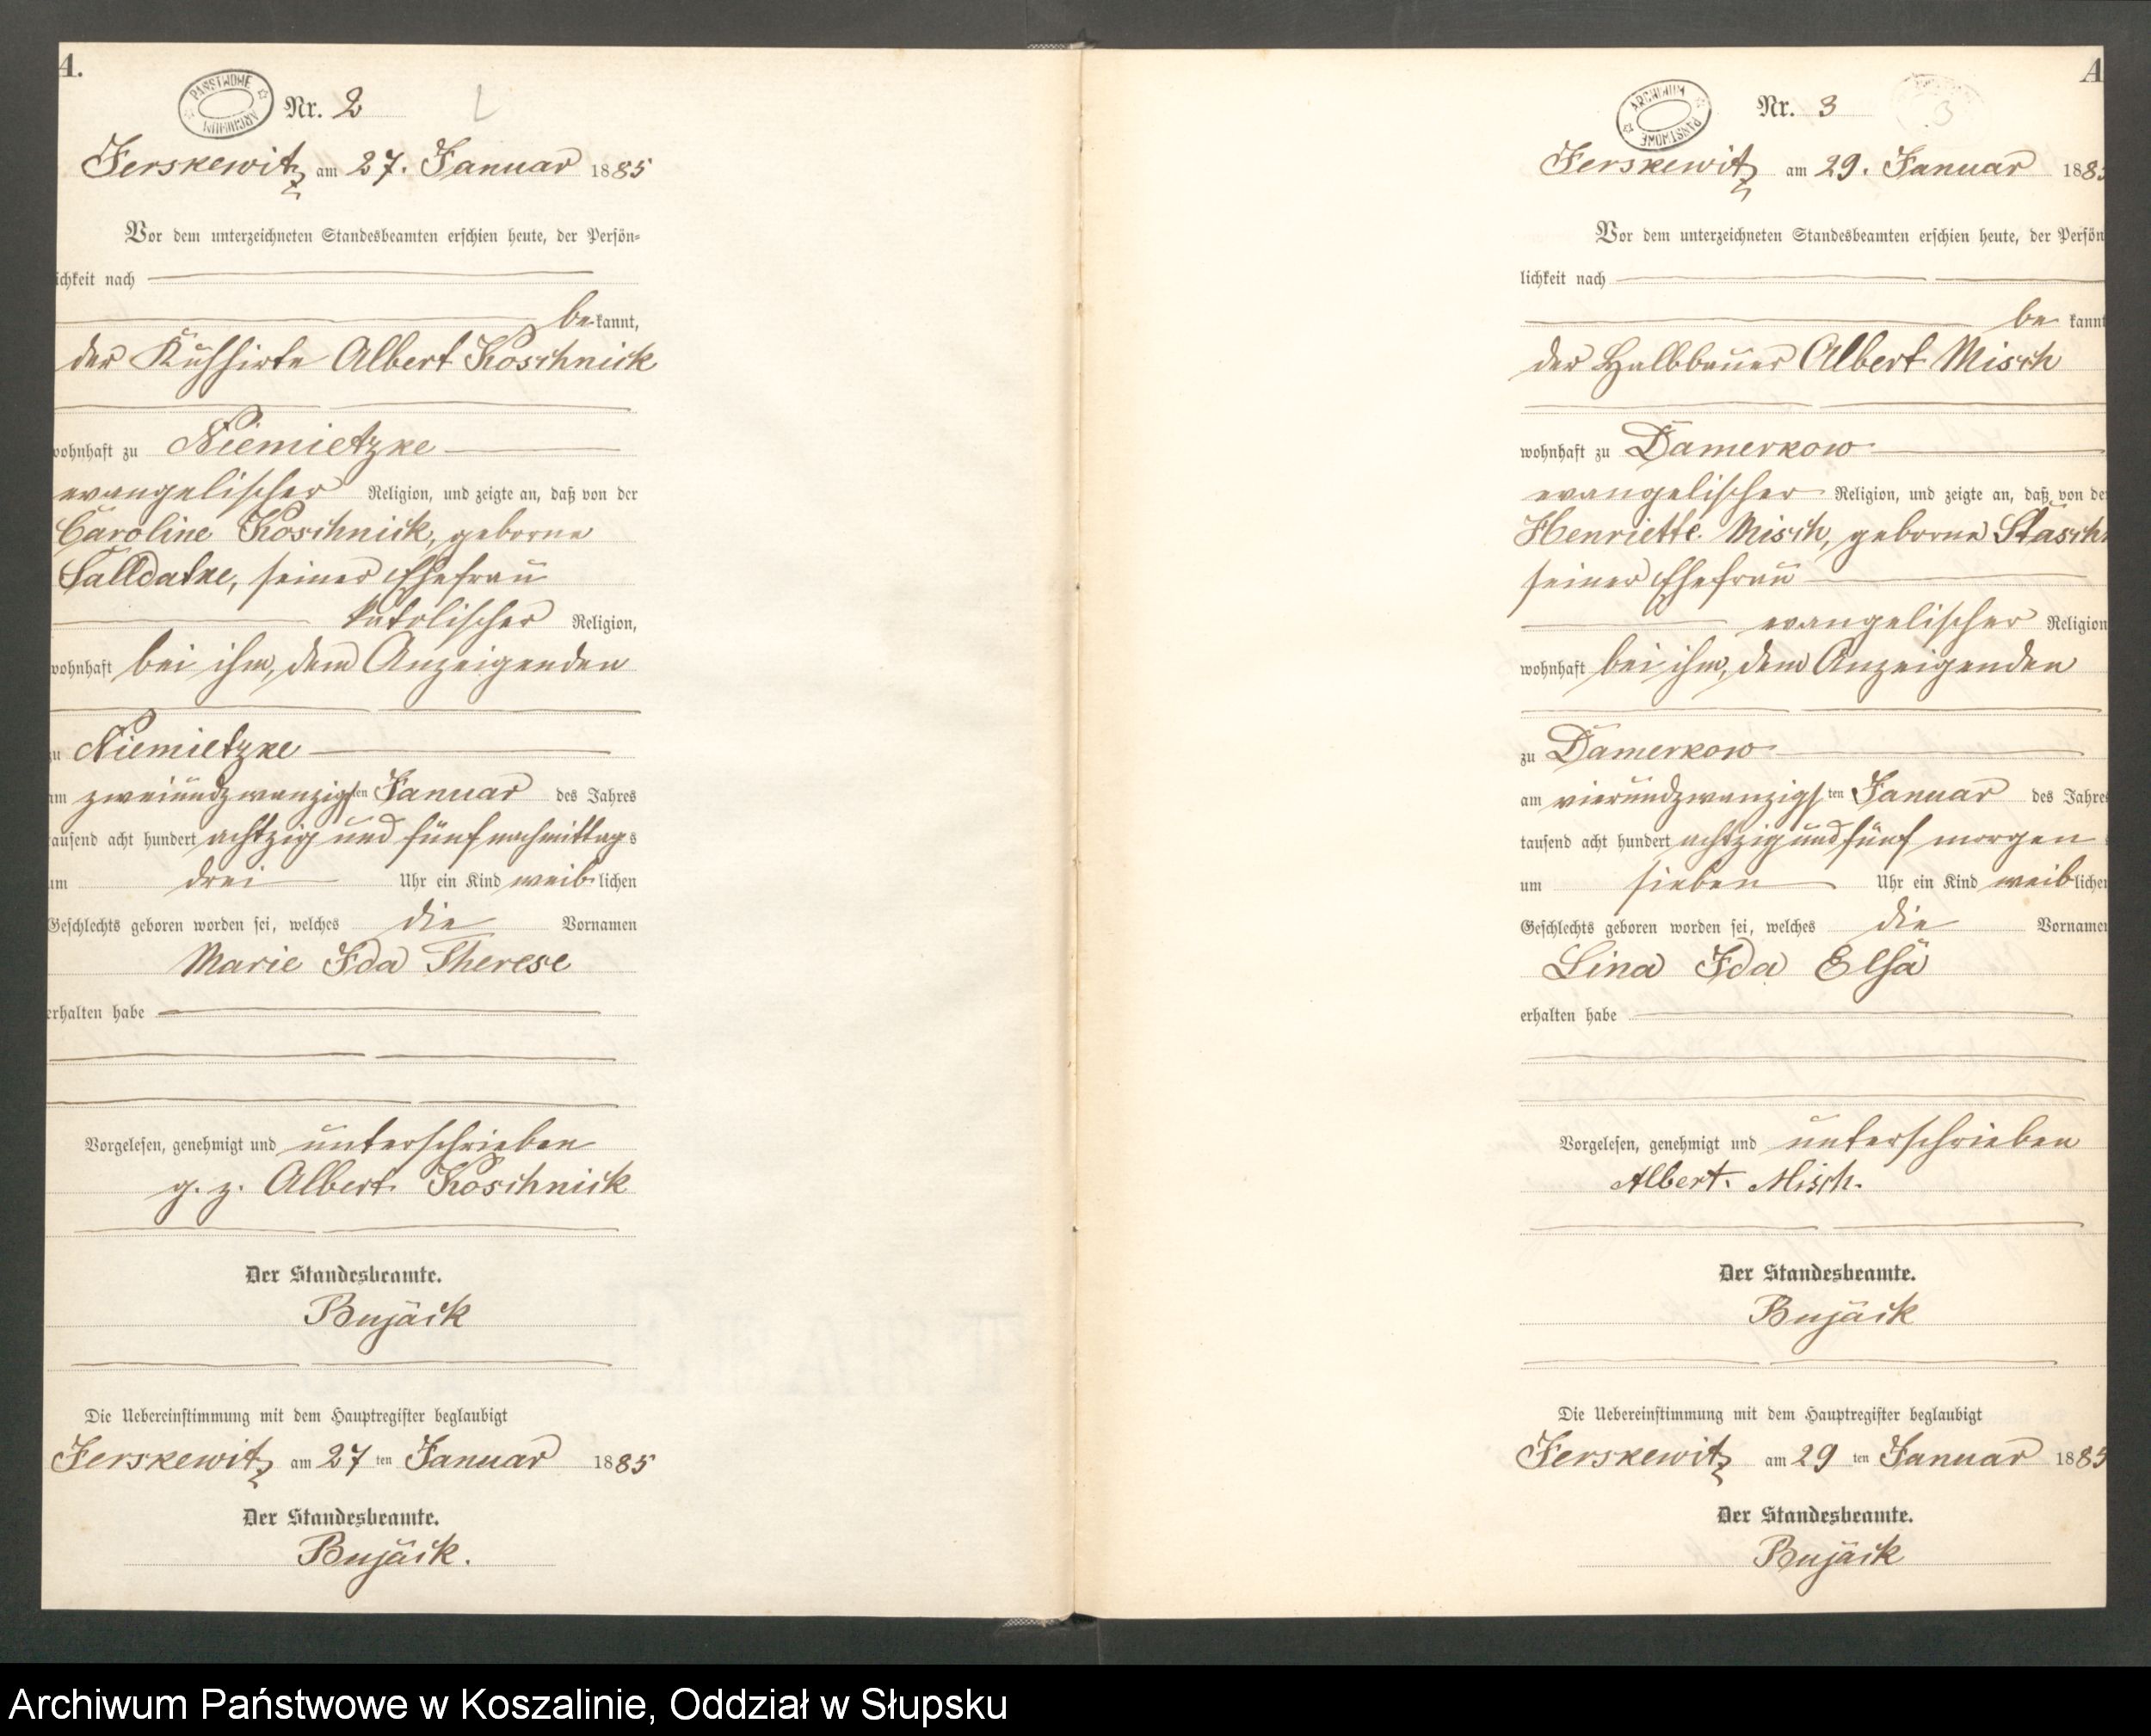 A.
PAŃSTWOWE ARCHIWUM
Nr. 2
Jerskewitz am 27. Januar 1885
Vor dem unterzeichneten Standesbeamten erschien heute, der Persön-
lichkeit nach
bekannt,
der Kuhhirte Albert Koschnick
wohnhaft zu Niemietzke
evangelischer Religion, und zeigte an, daß von der
Caroline Koschnick, geborne
seiner Ehefrau
katolischer Religion,
wohnhaft bei ihm, dem Anzeigenden
zu Niemietzke
am zweiundzwanzigsten Januar des Jahres
tausend acht hundert achtzig und fünf nachmittags
um drei Uhr ein Kind weiblichen
Geschlechts geboren worden sei, welches die Vornamen
Marie Ida Therese
erhalten habe
Vorgelesen, genehmigt und unterschrieben
g. z. Albert Koschnick
Der Standesbeamte.
Bujäck
Die Uebereinstimmung mit dem Hauptregister beglaubigt
Jerskewitz am 27 ten Januar 1885
Der Standesbeamte.
Bujäck.
A
ARCHIWUM PAŃSTWOWE
Nr. 3
3
Jerskewitz am 29. Januar 1885
Vor dem unterzeichneten Standesbeamten erschien heute, der Persön
lichkeit nach
bekannt
der Halbbauer Albert Misch
wohnhaft zu Damerkow
evangelischer Religion, und zeigte an, daß von der
Henriette Misch, geborne
seiner Ehefrau
evangelischer Religion
wohnhaft bei ihm, dem Anzeigenden
zu Damerkow
am vierundzwanzigsten Januar des Jahres
tausend acht hundert achtzig und fünf morgen
um sieben Uhr ein Kind weiblichen
Geschlechts geboren worden sei, welches die Vornamen
Lina Ida Elsa
erhalten habe
Vorgelesen, genehmigt und unterschrieben
Albert Misch.
Der Standesbeamte.
Bujäck
Die Uebereinstimmung mit dem Hauptregister beglaubigt
Jerskewitz am 29 ten Januar 1885
Der Standesbeamte.
Bujäck
Archiwum Państwowe w Koszalinie, Oddział w Słupsku